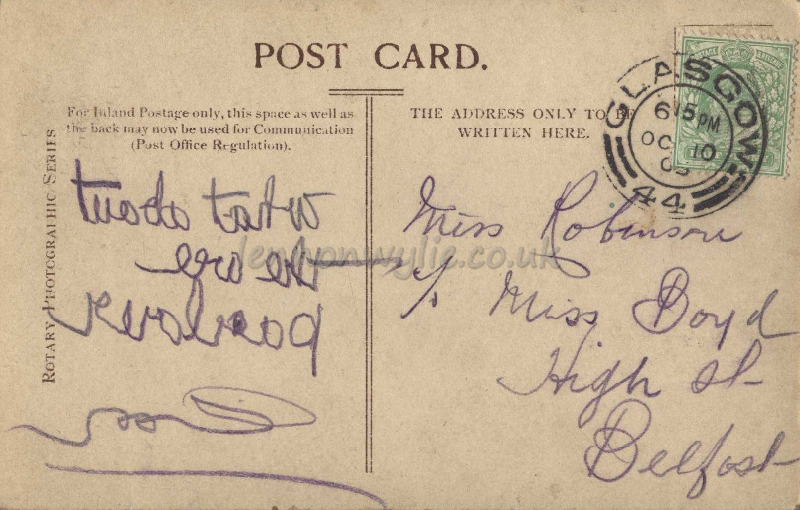 POST CARD.
For Inland Postage only, this space as well as
the back may now be used for Communication
(Post Office Regulation).
THE ADDRESS ONLY TO BE
WRITTEN HERE.
ROTARY PHOTOGRAPHIC SERIES
What about
the
Miss Robinson
c/o Miss Boyd
High St
Belfast
GLASGOW
6 15 PM
OC 10
44
lennonwylie.co.uk